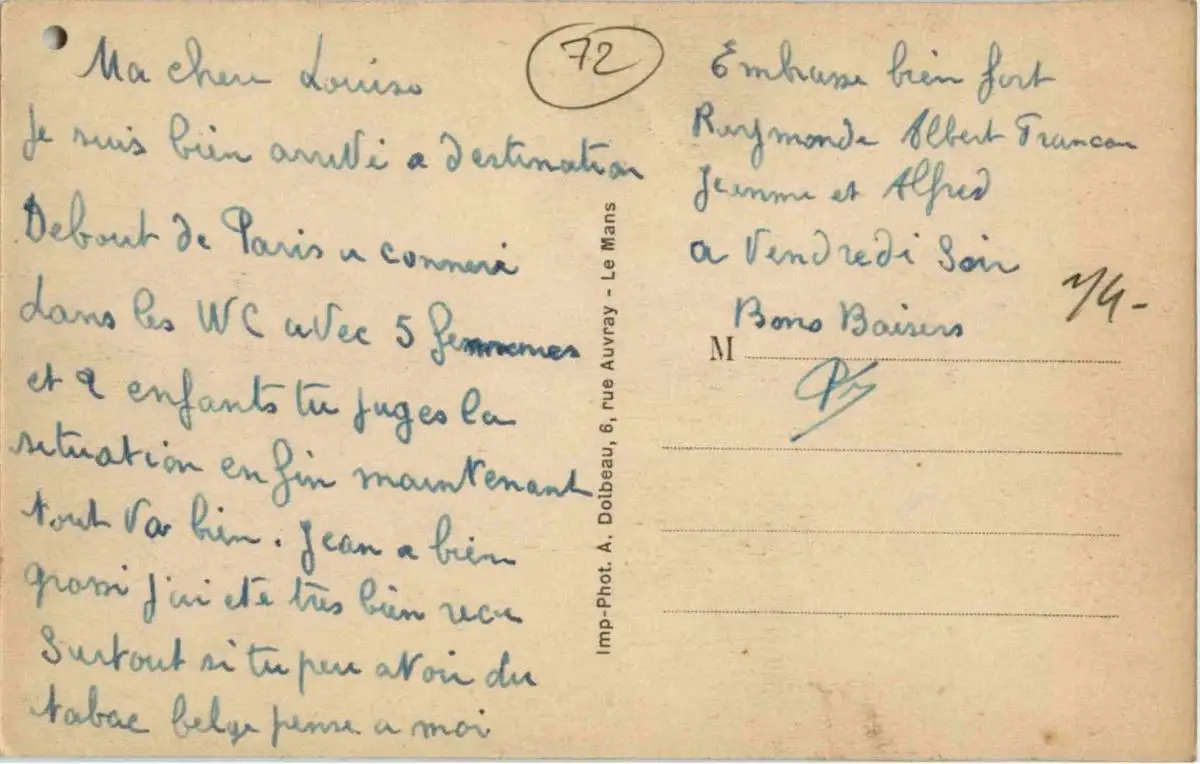 72
Ma cher Louise
Je suis bien arrivé a destination
Debout de Paris a conneré
dans les WC avec 5 femmes
et 2 enfants tu juges la
situation enfin maintenant
tout va bien. Jean a bien
grossi j'ai eté très bien recu
Surtout si tu peu avoir du
tabac belge pense a moi
Imp-Phot. A. Dolbeau, 6, rue Auvray - Le Mans
Embrasse bien fort
Raymonde Albert
Jeanne et Alfred
a Vendredi Soir
Bons Baisers
M